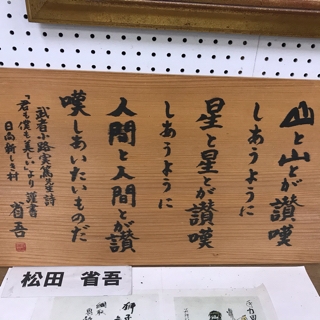 山と山とが讃嘆
しあうように
星と星とが讃嘆
しあうように
人間と人間とが讃
嘆しあいたいものだ
武者小路実篤先生詩
「君も僕も美しい」より 謹書
日向新しき村
省吾
松田 省吾